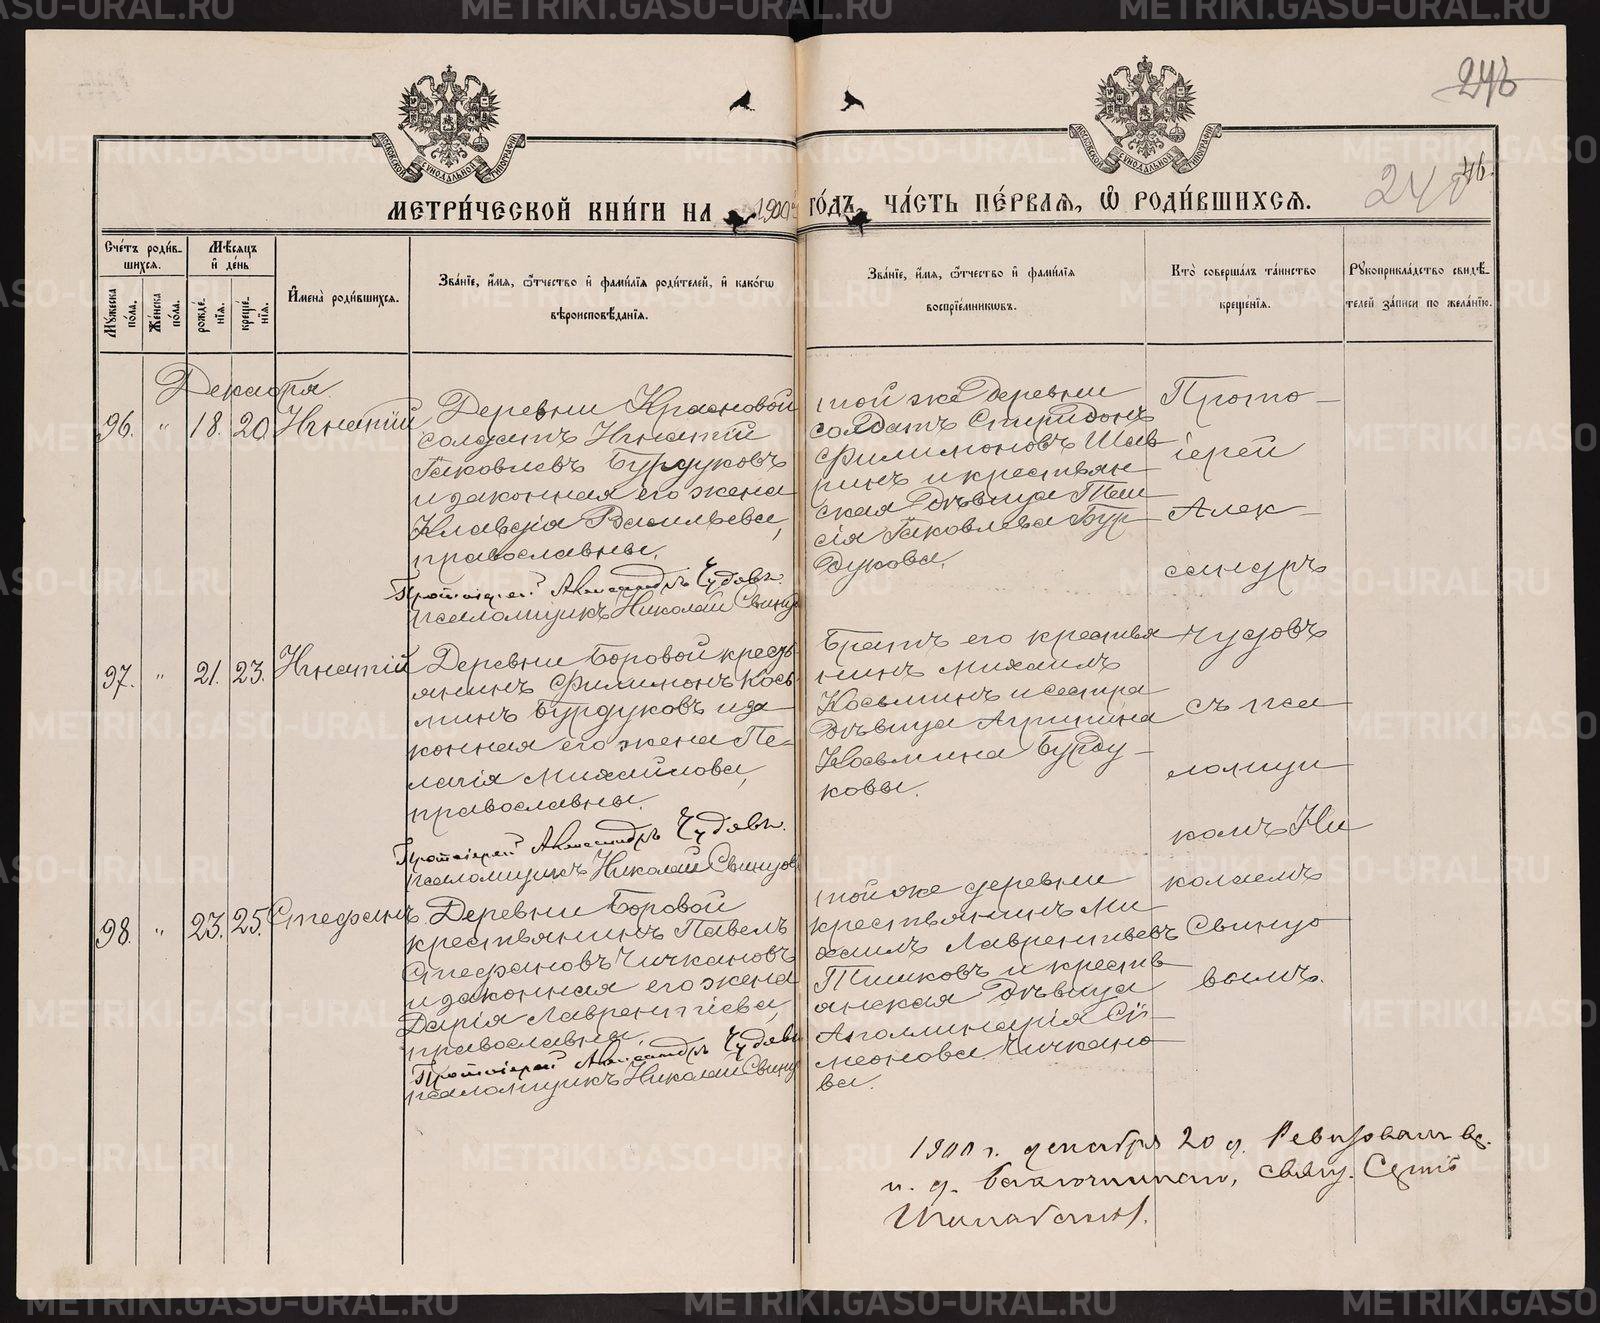 METRIKI.GASO-URAL.RU
246
246.
МОСКОВСКОЙ СѴНОДАЛЬНОЙ ТИПОГРАФІИ
МОСКОВСКОЙ СѴНОДАЛЬНОЙ ТИПОГРАФІИ
МЕТРИ́ЧЕСКОЙ КНИ́ГИ НА 1900й ГО́ДЪ, ЧА́СТЬ ПЕ́РВАѦ, Ѡ҆ РОДИ́ВШИХСѦ.
Сче́тъ роди́вшихсѧ.
Мꙋ́жеска по́ла.
Же́нска по́ла.
Мѣ́сѧцъ и҆ де́нь
рожде́нїѧ.
креще́нїѧ.
И҆мена̀ роди́вшихсѧ.
Зва́нїе, и҆́мѧ, ѻ҆́тчество и҆ фами́лїѧ роди́телей, и҆ како́гѡ
вѣроисповѣ́данїѧ.
Зва́нїе, и҆́мѧ, ѻ҆́тчество и҆ фами́лїѧ
воспрїе́мникѡвъ.
Кто̀ соверша́лъ та́инство
креще́нїѧ.
Рꙋкоприкла́дство свидѣ́-
телей за́писи по жела́нїю.
Декабря
96. " 18. 20. Игнатій
Деревни Красновой
солдатъ Игнатій
Іаковлевъ Бурдуковъ
и законная его жена
Клавдія Васильева,
православны.
Протоіерей Александръ Чудовъ.
псаломщикъ Николай Свинцов
той же деревни
солдатъ Спиридонъ
Филимоновъ Шав
ринъ и крестьян
ская дѣвица Таи
сія Іаковлева Бур-
дукова.
Прото-
іерей
Алек-
сандръ
Чудовъ
съ пса
ломщи
комъ Ни
колаемъ
Свинцо
вымъ.
97. " 21. 23. Игнатій
Деревни Боровой кресть
янинъ Филимонъ Кось
минъ Бурдуковъ и за
конная его жена Пе-
лагія Михайлова,
православны.
Протоіерей Александръ Чудовъ.
псаломщикъ Николай Свинцов
Братъ его крестья
нинъ Михаилъ
Косьминъ и сестра
дѣвица Агрипина
Косьмина Бурду-
ковы.
98. " 23. 25. Стефанъ
Деревни Боровой
крестьянинъ Павелъ
Стефановъ Чичкановъ
и законная его жена
Дарія Лаврентіева,
православны.
Протоіерей Александръ Чудовъ
псаломщикъ Николай Свинцов
той же деревни
крестьянинъ Ми
хаилъ Лаврентьевъ
Пашковъ и кресть
янская дѣвица
Аполлинарія Си-
меонова Чичкано
ва.
1900 г. декабря 20 д. Ревизовалъ
и. д. свящ.